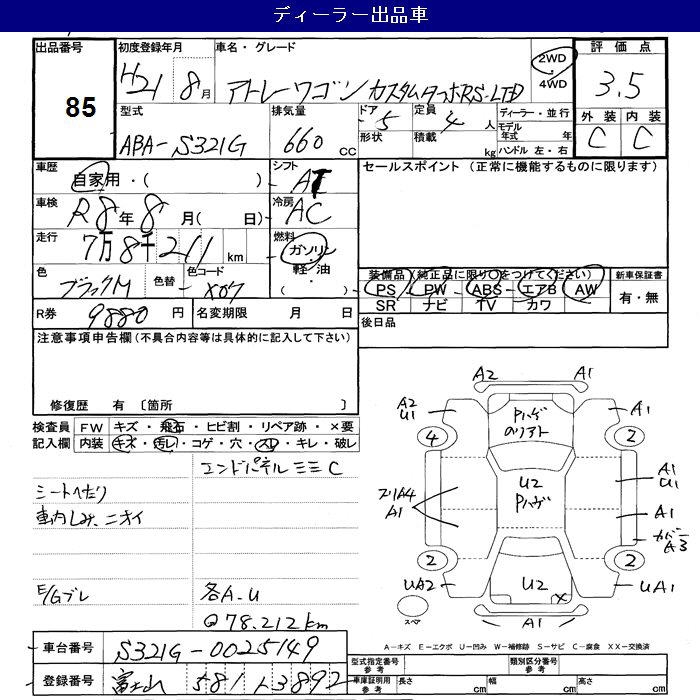 ディーラー出品車
出品番号 初度登録年月 車名・グレード 評価点
85 H21年 8月 アトレーワゴン カスタムターボRS-LTD 2WD 4WD 3.5
型式 排気量 ドア 定員 ディーラー・並行 外装 内装
ABA-S321G 660cc 5 4人 モデル年式 年 C C
形状 積載 kg ハンドル 左・右
車歴 自家用・( ) シフト AT セールスポイント (正常に機能するものに限ります)
車検 R8年8月( 日) 冷房 AC
走行 7万8千211km 燃料 ガソリン・軽油・( )
色 ブラックM 色替 色コード X07
装備品 (純正品に限り○をつけてください) 新車保証書
PS PW ABS エアB AW 有・無
SR ナビ TV カワ
R券 9880円 名変期限 月 日 後日品
注意事項申告欄(不具合内容等は具体的に記入して下さい)
修復歴 有 〔箇所 〕
検査員 FW キズ・飛石・ヒビ割・リペア跡・×要
記入欄 内装 キズ・汚レ・コゲ・穴・スレ・キレ・破レ
エンドパネルミミC
シートへたり
車内しみ、ニオイ
E/Gブレ 各A.U
@78.212km
A2 A1
A2 U1 Pハゲ A1
4 2
A1 U1
U2 Pハゲ
A1 A1
カバー A3
2 2
UA2 U2 UA1
スペア A1
A-キズ E-エクボ U-凹み W-補修跡 S-サビ C-腐食 XX-交換済
車台番号 S321G-0025149
型式指定番号 参考 類別区分番号 参考
登録番号 富士山 581 13892
車庫証明用 参考 長さ cm 幅 cm 高さ cm